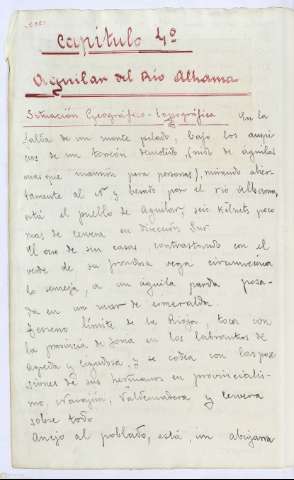 Capitulo 4º
Aguilar del Río Alhama
Situación Geográfico-topográfica En la
falda de un monte pelado, bajo los auspi
cios de un torreón derruido, (nido de águilas
mas que mansion para personas), mirando abier-
tamente al N y besado por el río Alhama,
está el pueblo de Aguilar, seis Kilmets poco
mas de Cervera en dirección Sur.
El ocre de sus casas contrastando con el
verde de su frondosa vega circunvecina
lo semeja a un aguila parda posa-
da en un mar de esmeralda.
Terreno límite de la Rioja, toca con
la provincia de Soria en los labrantios de
Agreda y Cigudosa, y se codea con las pose
siones de sus hermanos en provincialis-
mo, Navajún, Valdemadera y Cervera
sobre todo
Anejo al poblado, está, un abigarra